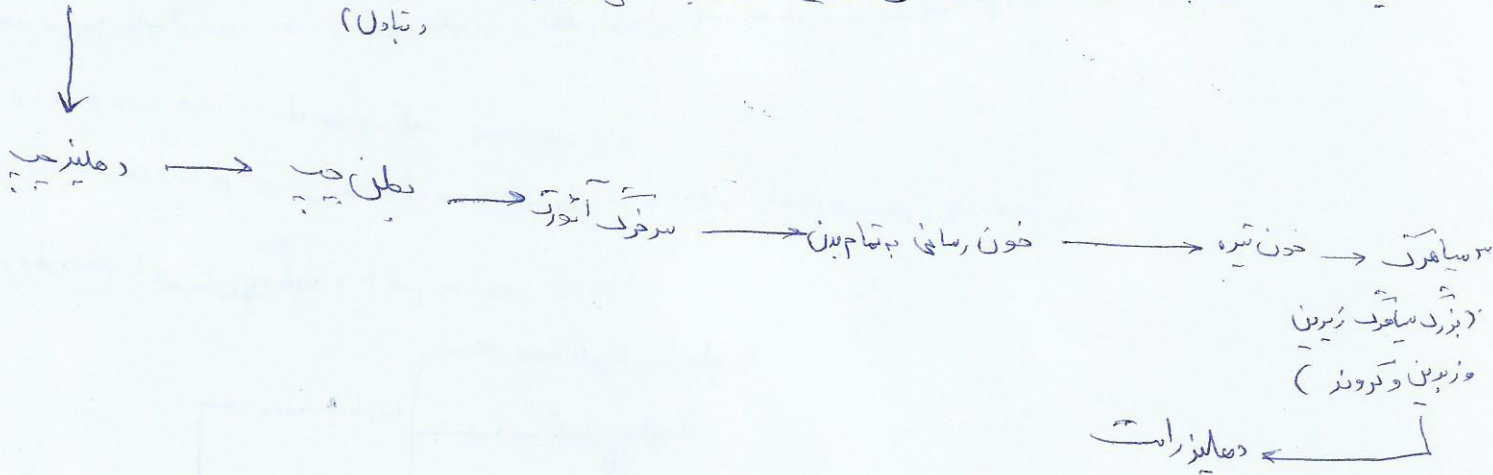 و تبادل)
دهلیز چپ → بطن چپ → سرخرگ آئورت → خون رسانی به تمام بدن → خون تیره → ۳ سیاهرگ
(بزرگ سیاهرگ زبرین
و زیرین و کرونر)
دهلیز راست